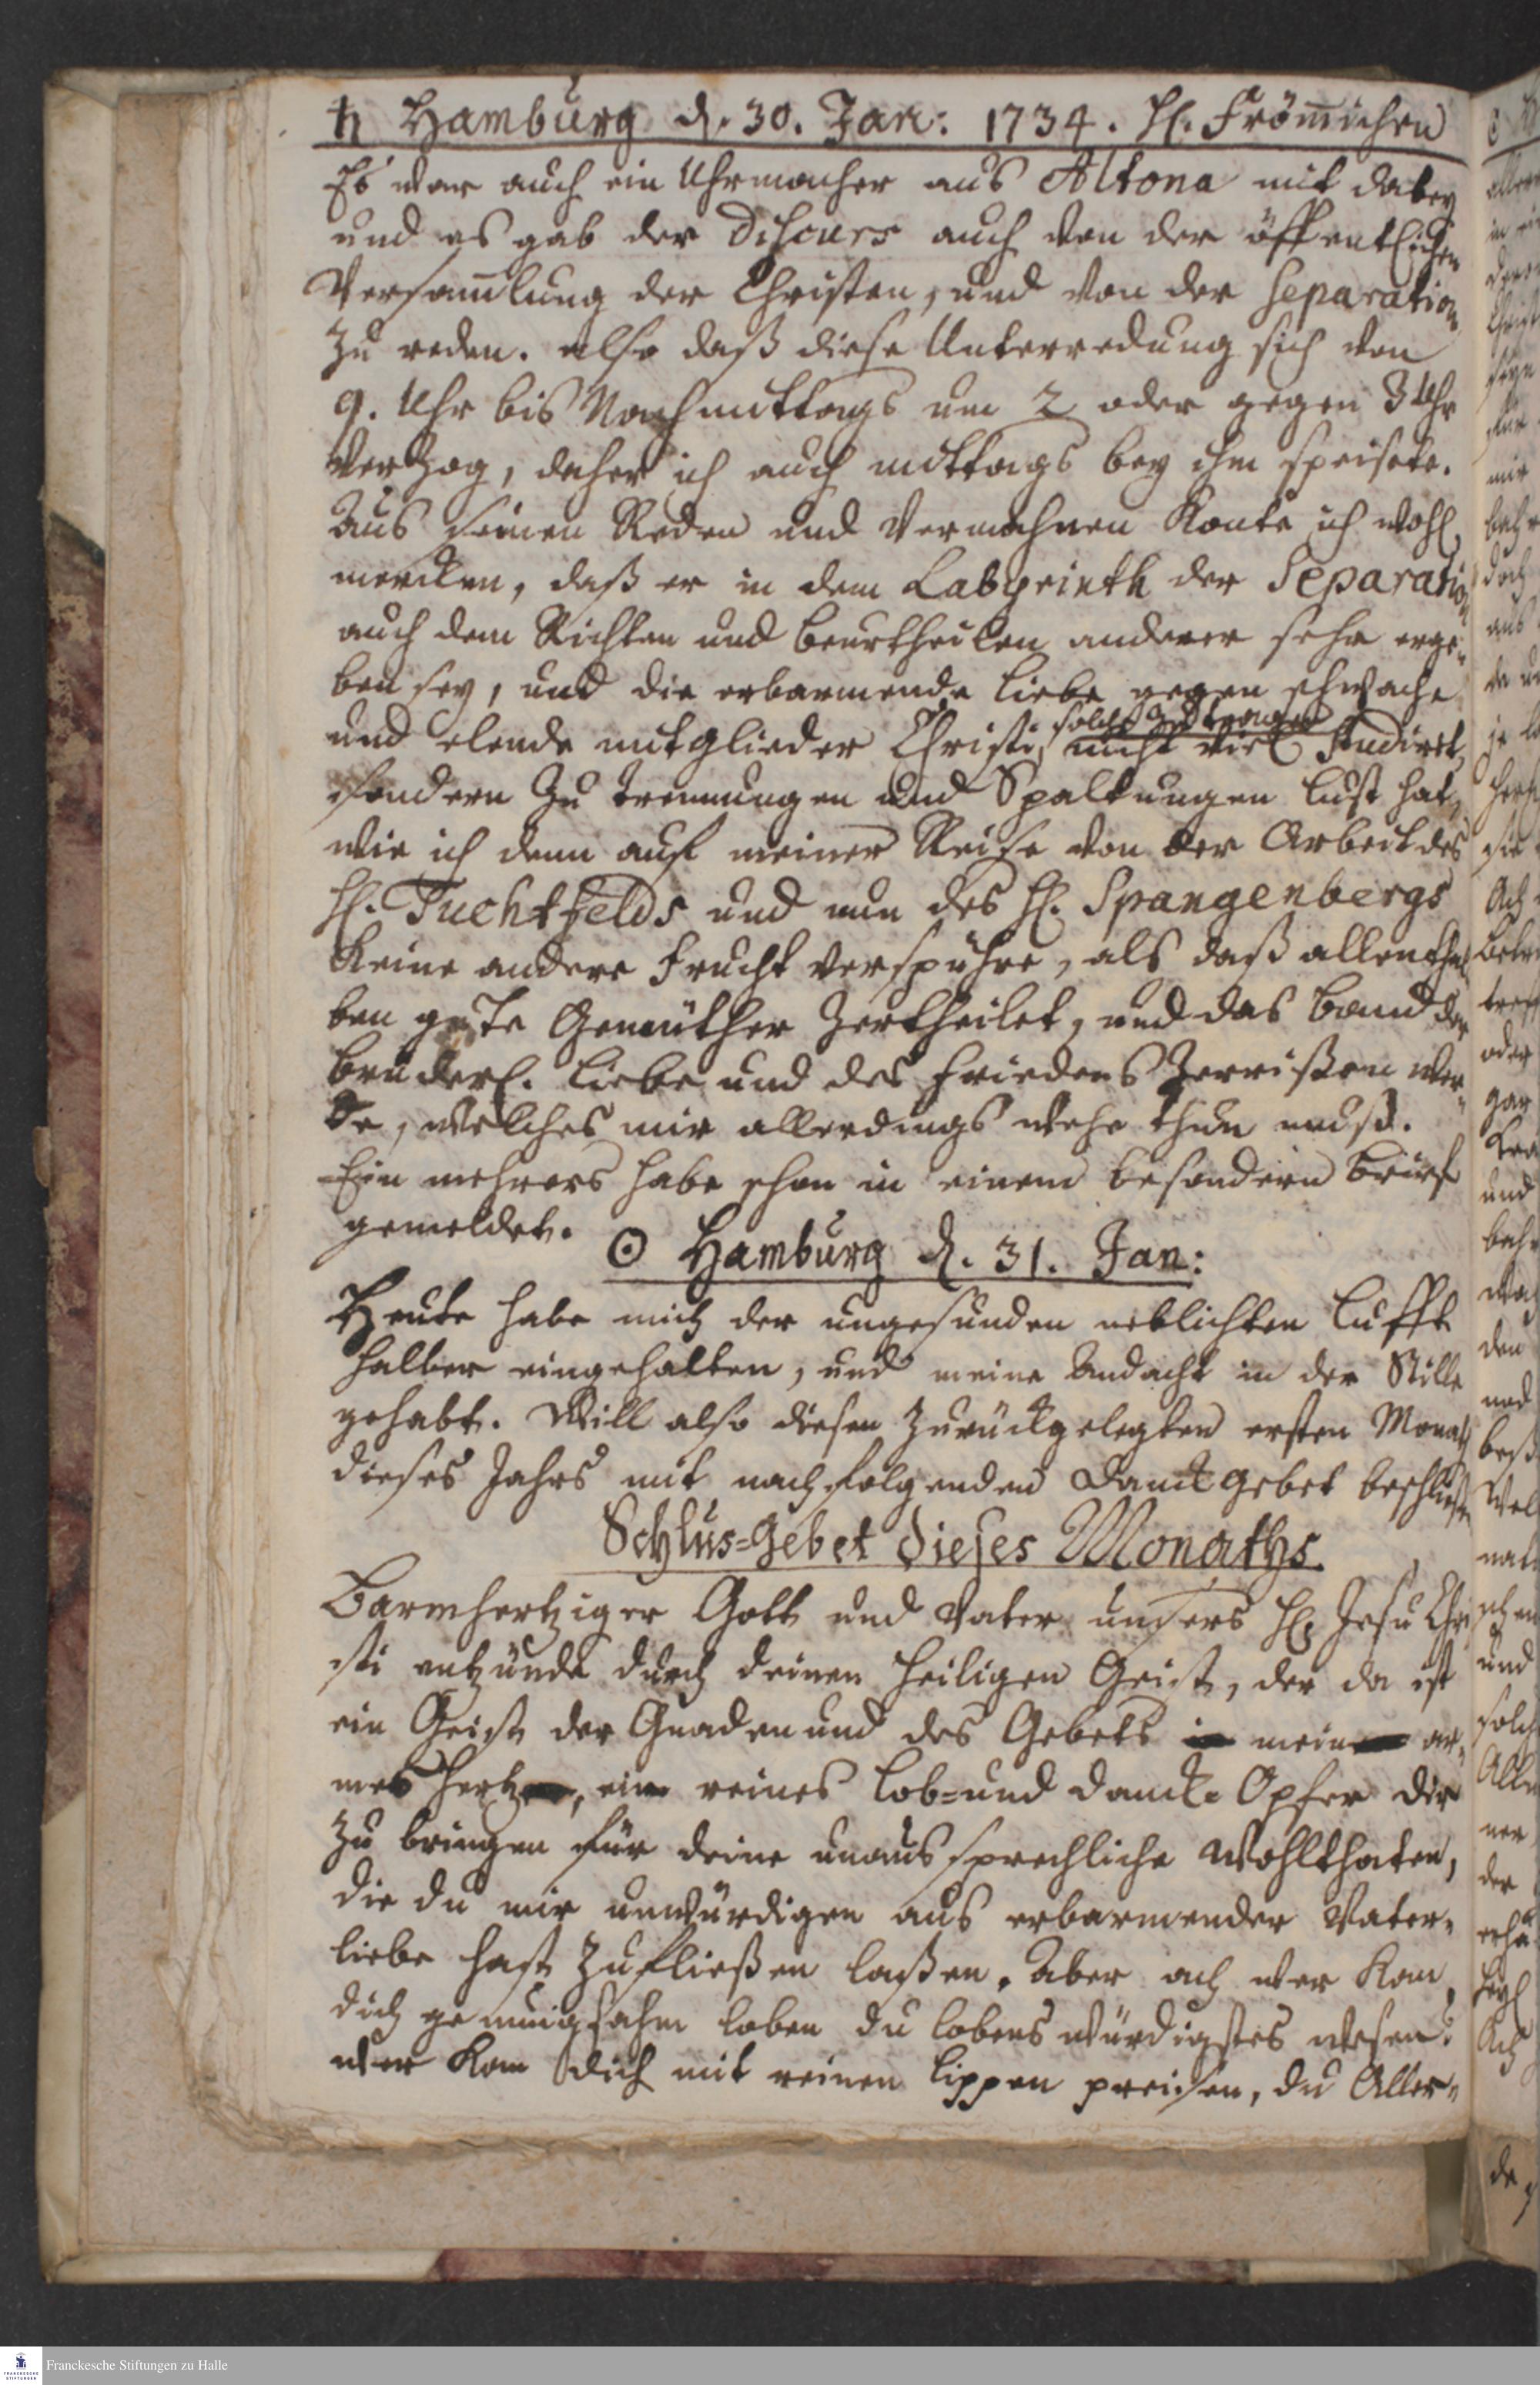 ♄ Hamburg d. 30. Jan: 1734. H. Frömmichen
Es war auch ein Uhrmacher aus Altona mit dabey
und es gab der Discurs auch von der öffentlichen
Versamlung der Christen, und von der Separation
zu reden. also daß diese Unterredung sich von
9. Uhr bis Nachmittags um 2 oder gegen 3 Uhr
verzog, daher ich auch mittags bey ihm speisete.
Aus seinen Reden und Vermahnen konte ich wohl
mercken, daß er in dem Labyrinth der Separation
auch dem Richten und beurtheilen anderer sehr erge-
ben sey, und die erbarmende Liebe gegen schwache
und elende mitglieder Christi, solche zu tragen nicht viel studiret,
sondern zu trennungen und Spaltungen lust hat,
wie ich denn auf meiner Reise von der Arbeit des
H. Tuchtfelds und nun des H. Spangenbergs
keine andere Frucht verspühre, als daß allenthal
ben gute Gemüther zertheilet, und das band der
brüderl. Liebe und des Friedens zerrißen wer-
de, welches mir allerdings wehe thun muß.
Ein mehrers habe schon in einem besondern brief
gemeldet.
☉ Hamburg d. 31. Jan:
Heute habe mich der ungesunden neblichten Lufft
halber eingehalten, und meine Andacht in der Stille
gehabt. Will also diesen zurückgelegten ersten Monath
dieses Jahrs mit nachfolgenden Danckgebet beschließen
Schlus=Gebet dieses Monaths.
Barmhertziger Gott und Vater unsers H. Jesu Chri
sti entzünde durch deinen heiligen Geist, der da ist
ein Geist der Gnaden und des Gebets mein ar-
mes Hertz, ein reines Lob=und Danck=Opfer dir
zu bringen für deine unaussprechliche Wohlthaten,
die du mir unwürdigen aus erbarmender Vater-
liebe hast zufließen laßen. Aber ach wer kan
dich genungsahm loben du lobens würdigstes wesen?
wer kan dich mit reinen Lippen preisen, du Aller-
Franckesche Stiftungen zu Halle